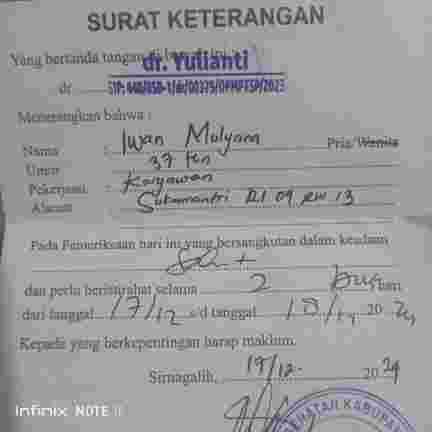 SURAT KETERANGAN
Yang bertanda tangan di bawah ini
dr. Yulianti
dr.
Menerangkan bahwa :
Nama : Iwan Mulyana Pria/Wanita
Umur 37 thn
Pekerjaan : Karyawan
Alamat : Sukamantri Rt 09 RW 13
Pada Pemeriksaan hari ini yang bersangkutan dalam keadaan
Sakit
dan perlu beristirahat selama 2 Dua hari
dari tanggal 17/12 s/d tanggal 18/12 2024
Kepada yang berkepentingan harap maklum.
Sirnagalih, 17/12- 2024
KESEHATAN KABUPA
Infinix NOTE